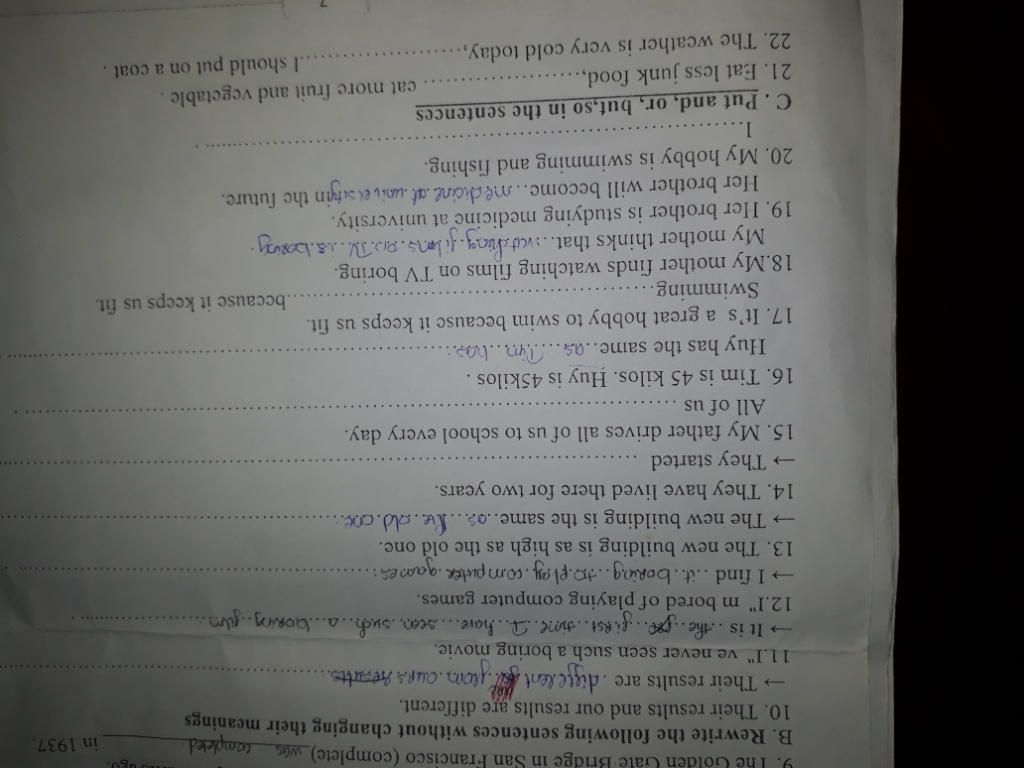 9. The Golden Gate Bridge in San Francisco (complete) was completed in 1937.
B. Rewrite the following sentences without changing their meanings
10. Their results and our results are different.
→ Their results are different from ours results
11.I" ve never seen such a boring movie.
→ It is the first time I have seen such a boring film
12.I" m bored of playing computer games.
→ I find it boring to play computer games
13. The new building is as high as the old one.
→ The new building is the same as the old one
14. They have lived there for two years.
→ They started
15. My father drives all of us to school every day.
All of us
16. Tim is 45 kilos. Huy is 45kilos .
Huy has the same as Tim has
17. It's a great hobby to swim because it keeps us fit.
Swimming because it keeps us fit.
18.My mother finds watching films on TV boring.
My mother thinks that watching films on TV is boring
19. Her brother is studying medicine at university.
Her brother will become medicine at university in the future.
20. My hobby is swimming and fishing.
I
C . Put and, or, but,so in the sentences
21. Eat less junk food, eat more fruit and vegetable .
22. The weather is very cold today, I should put on a coat .